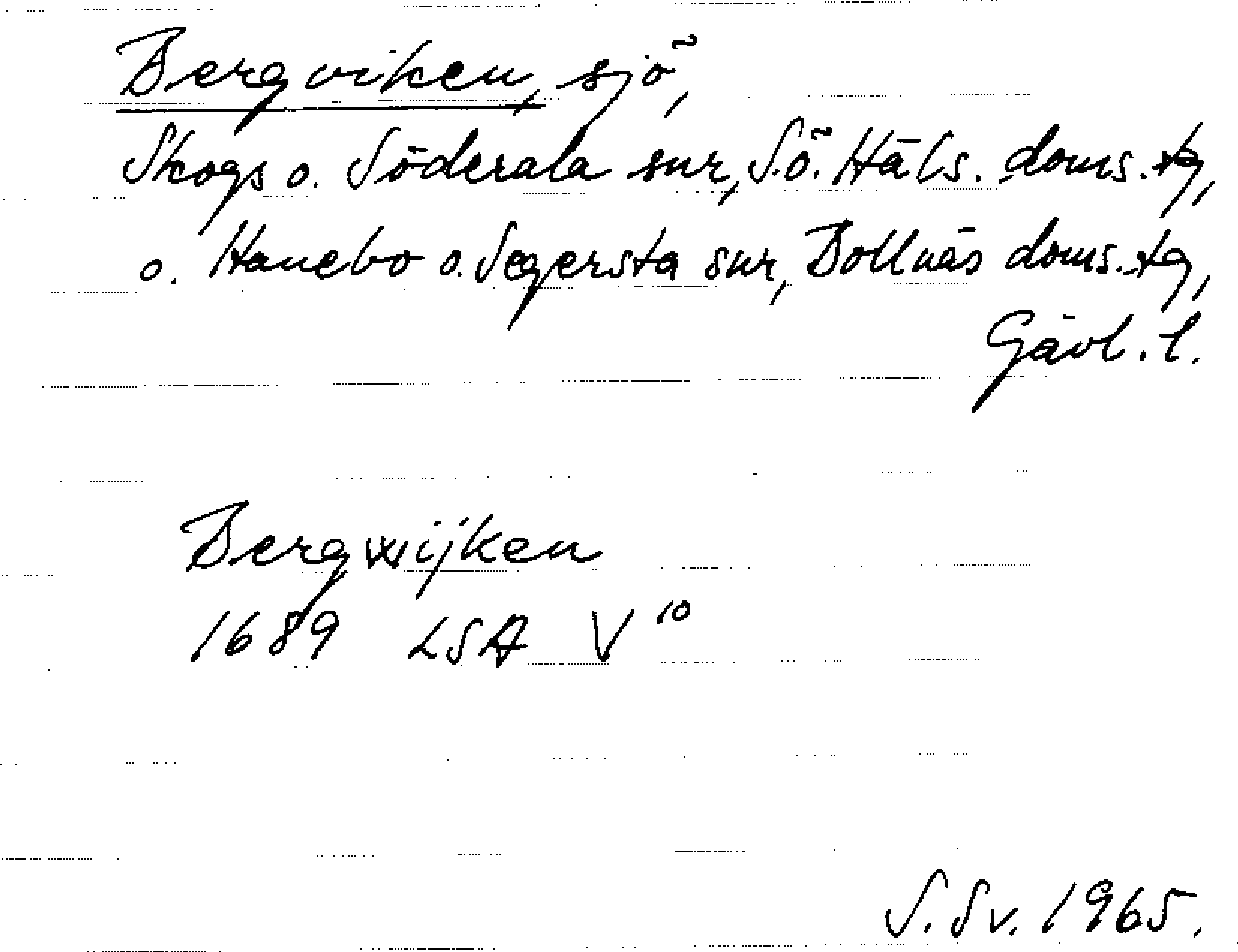 Bergviken, sjö,
Skogs o. Söderala snr, S.ö. Häls. doms.tg,
o. Hanebo o. Segersta snr, Bollnäs doms.tg,
Gävl. l.
Bergwijken
1689 LSA V 10
S. Sv. 1965.